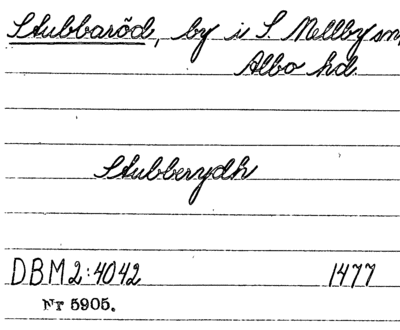 Stubbaröd, by i S. Mellby sn,
Albo hd.
Stubberydh
DBM 2:4042 1477
Nr 5905.